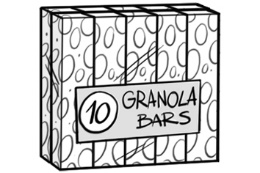 10 GRANOLA
BARS